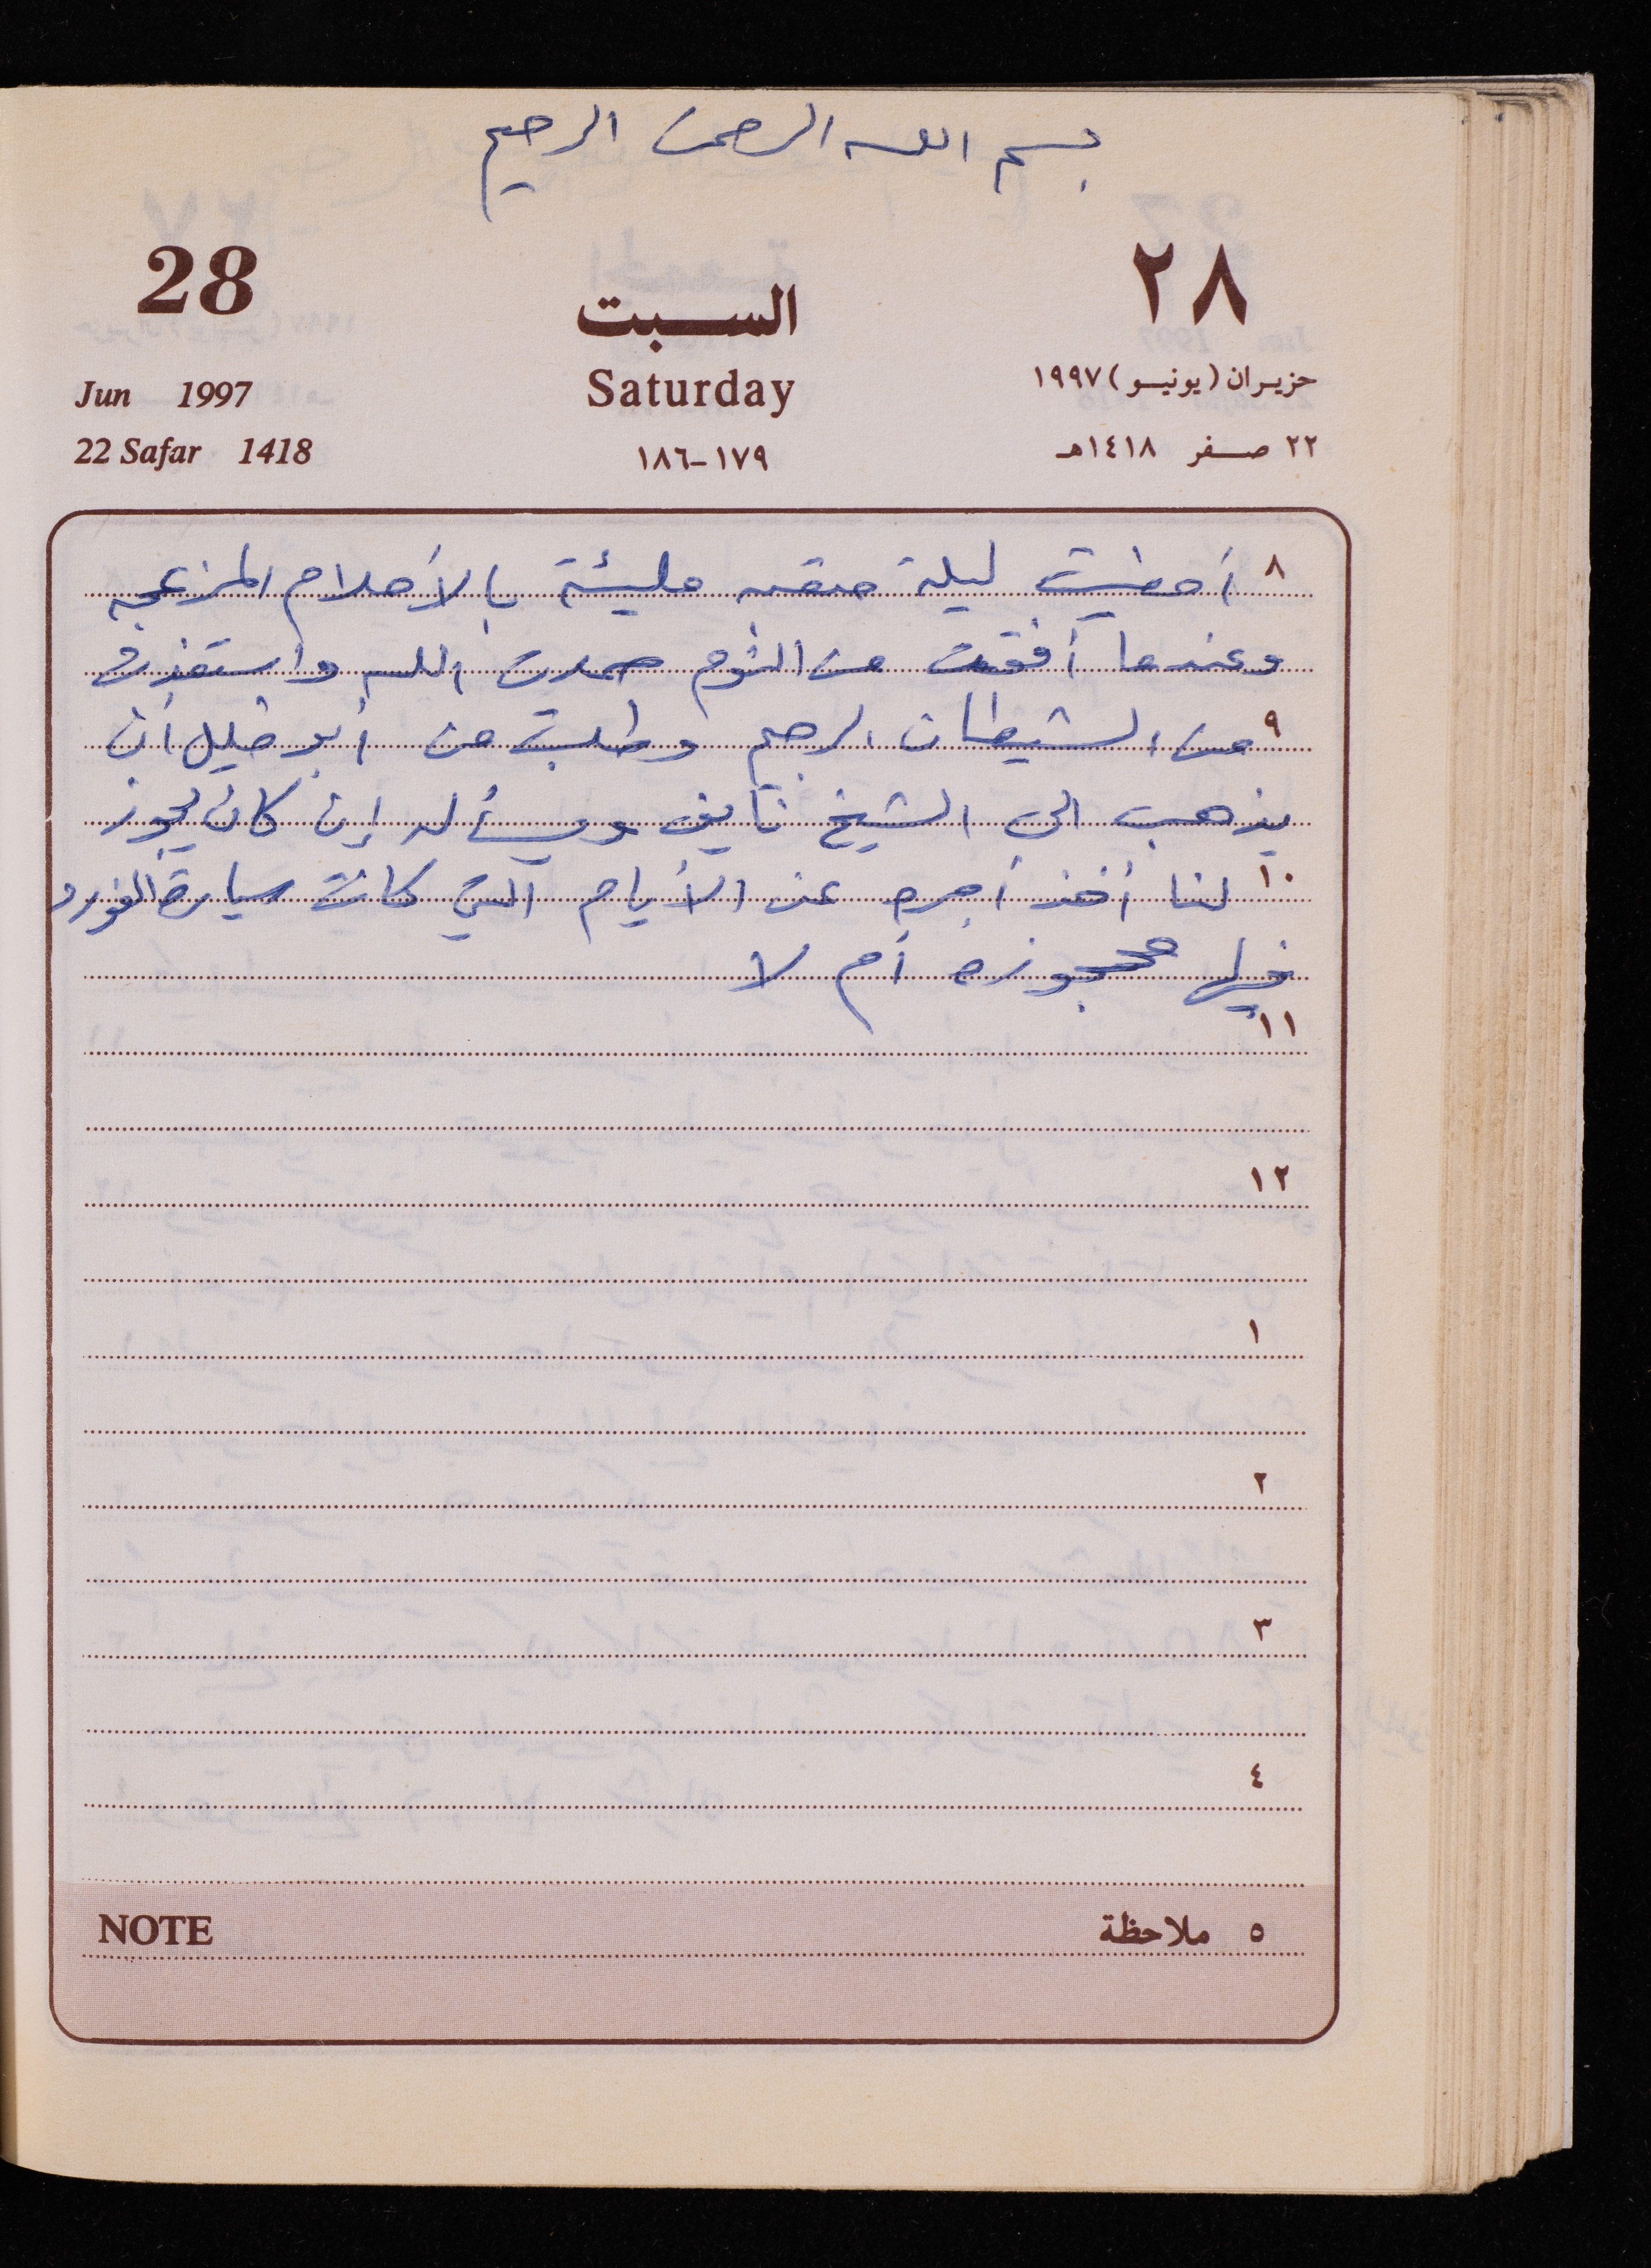 بسم الله الرحمن الرحيم
28 السبت ٢٨
Jun 1997 Saturday حزيران (يونيو) ١٩٩٧
22 Safar 1418 ١٧٩-١٨٦ ٢٢ صفر ١٤١٨هـ
٨ أمضيت ليلة متعبه مليئة بالأحلام المزعجه
وعندما أفقت من النوم حمدت الله واستعذت
٩ من الشيطان الرجيم وطلبت من أبو خليل أن
يذهب الى الشيخ نايف ويسأله إن كان يجوز
١٠ لنا أخذ أجره عن الأيام التي كانت سيارة الفورد
فيها محجوزه أم لا
١١
١٢
١
٢
٣
٤
NOTE ٥ ملاحظة